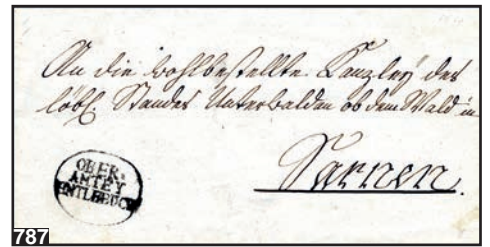 An die wohlbestellte Kanzley des
löbl. Standes Unterwalden ob dem Wald in
Sarnen.
OBER-
AMTEY
ENTLEBUCH
787